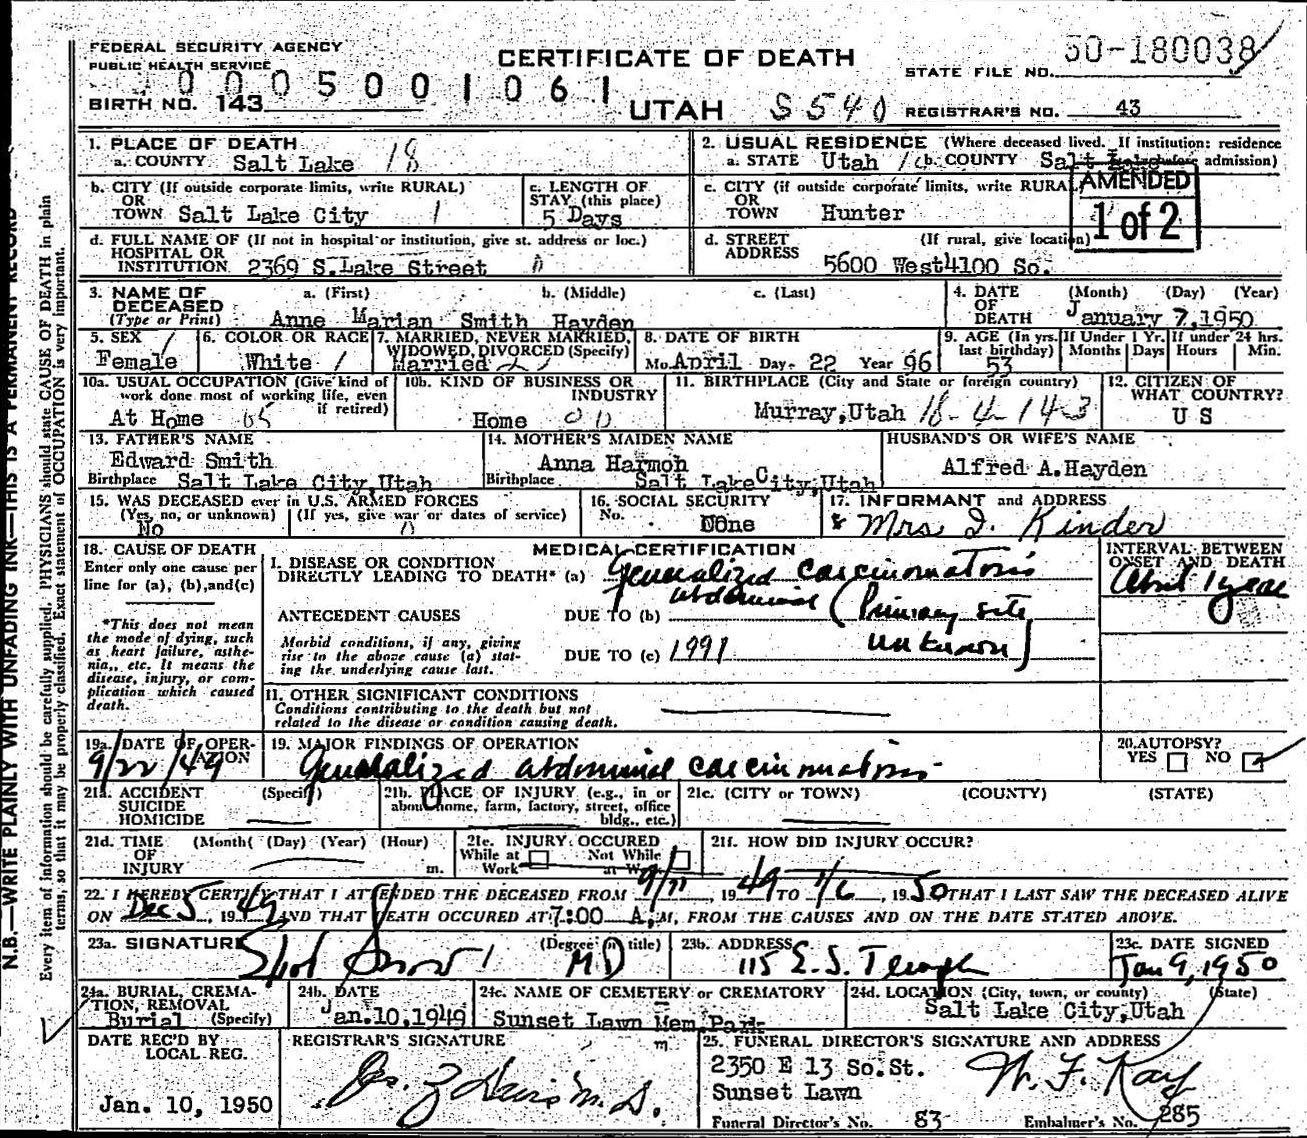 FEDERAL SECURITY AGENCY
PUBLIC HEALTH SERVICE
CERTIFICATE OF DEATH
STATE FILE NO. 50-180038
0005001061
BIRTH NO. 143
UTAH S540
REGISTRAR'S NO. 43
1. PLACE OF DEATH
a. COUNTY Salt Lake 18
2. USUAL RESIDENCE (Where deceased lived. If institution: residence before admission)
a. STATE Utah b. COUNTY Salt Lake
AMENDED
1 of 2
b. CITY (If outside corporate limits, write RURAL)
OR
TOWN Salt Lake City 1
c. LENGTH OF
STAY (this place)
5 Days
c. CITY (if outside corporate limits, write RURAL
OR
TOWN Hunter
d. FULL NAME OF (If not in hospital or institution, give st. address or loc.)
HOSPITAL OR
INSTITUTION 2369 S.Lake Street 0
d. STREET (If rural, give location)
ADDRESS
5600 West4100 So.
3. NAME OF DECEASED
(Type or Print)
a. (First) b. (Middle) c. (Last)
Anne Marian Smith Hayden
4. DATE OF DEATH (Month) (Day) (Year)
January 7,1950
5. SEX
Female
6. COLOR OR RACE
White
7. MARRIED, NEVER MARRIED,
WIDOWED, DIVORCED (Specify)
Married
8. DATE OF BIRTH
Mo. April Day. 22 Year 96
9. AGE (In yrs. last birthday)
53
If Under 1 Yr.
Months Days
If under 24 hrs.
Hours Min.
10a. USUAL OCCUPATION (Give kind of
work done most of working life, even
if retired)
At Home
10b. KIND OF BUSINESS OR
INDUSTRY
Home
11. BIRTHPLACE (City and State or foreign country)
Murray,Utah 18-4-143
12. CITIZEN OF
WHAT COUNTRY?
U S
13. FATHER'S NAME
Edward Smith
Birthplace Salt Lake City,Utah
14. MOTHER'S MAIDEN NAME
Anna Harmon
Birthplace Salt Lake City,Utah
HUSBAND'S OR WIFE'S NAME
Alfred A.Hayden
15. WAS DECEASED ever in U.S. ARMED FORCES
(Yes, no, or unknown) (If yes, give war or dates of service)
No 0
16. SOCIAL SECURITY
No. None
17. INFORMANT and ADDRESS
Mrs I. Kinder
18. CAUSE OF DEATH
Enter only one cause per
line for (a), (b),and(c)
*This does not mean
the mode of dying, such
as heart failure, asthe-
nia, etc. It means the
disease, injury, or com-
plication which caused
death.
MEDICAL CERTIFICATION
I. DISEASE OR CONDITION
DIRECTLY LEADING TO DEATH* (a) Generalized carcinomatosis
abdominal (Primary site
unknown)
ANTECEDENT CAUSES DUE TO (b)
Morbid conditions, if any, giving
rise to the above cause (a) stat-
ing the underlying cause last.
DUE TO (c) 1991
INTERVAL BETWEEN
ONSET AND DEATH
about 1 year
11. OTHER SIGNIFICANT CONDITIONS
Conditions contributing to the death but not
related to the disease or condition causing death.
19a. DATE OF OPER-
ATION
9/22/49
19. MAJOR FINDINGS OF OPERATION
Generalized abdominal carcinomatosis
20. AUTOPSY?
YES NO
21a. ACCIDENT (Specify)
SUICIDE
HOMICIDE
21b. PLACE OF INJURY (e.g., in or
about home, farm, factory, street, office
bldg., etc.)
21c. (CITY or TOWN) (COUNTY) (STATE)
21d. TIME (Month( (Day) (Year) (Hour)
OF
INJURY m.
21e. INJURY OCCURED
While at Work Not While at Work
21f. HOW DID INJURY OCCUR?
22. I HEREBY CERTIFY THAT I ATTENDED THE DECEASED FROM 9/11, 1949 TO 1/6, 1950 THAT I LAST SAW THE DECEASED ALIVE
ON Dec 5, 1949 AND THAT DEATH OCCURED AT 7:00 A.M, FROM THE CAUSES AND ON THE DATE STATED ABOVE.
23a. SIGNATURE (Degree or title)
MD
23b. ADDRESS
115 E. S. Temple
23c. DATE SIGNED
Jan 9, 1950
24a. BURIAL, CREMA-
TION, REMOVAL
Burial (Specify)
24b. DATE
Jan.10,1949
24c. NAME OF CEMETERY or CREMATORY
Sunset Lawn Mem.Park
24d. LOCATION (City, town, or county) (State)
Salt Lake City,Utah
DATE REC'D BY
LOCAL REG.
Jan. 10, 1950
REGISTRAR'S SIGNATURE
M.D.
25. FUNERAL DIRECTOR'S SIGNATURE AND ADDRESS
2350 E 13 So.St.
Sunset Lawn
Funeral Director's No. 83 Embalmer's No. 285
N.B.—WRITE PLAINLY WITH UNFADING INK—THIS IS A PERMANENT RECORD
Every item of information should be carefully supplied. PHYSICIANS should state CAUSE OF DEATH in plain
terms, so that it may be properly classified. Exact statement of OCCUPATION is very important.